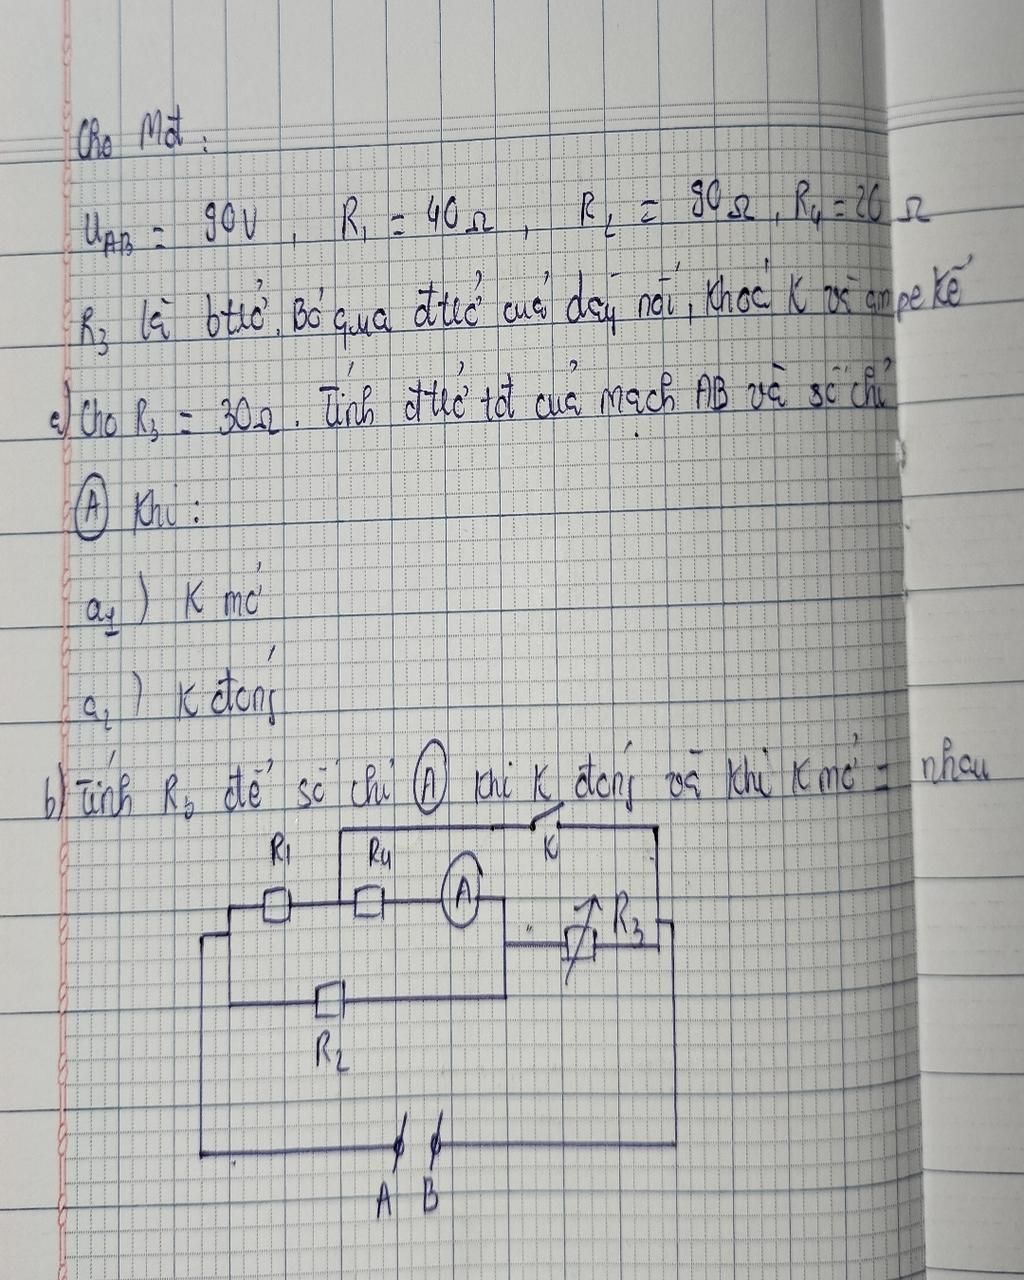 Cho Mđ :
U_AB = 90V , R₁ = 40Ω , R₂ = 90Ω , R₄ = 20 Ω
R₃ là btrở. Bỏ qua đtrở của dây nối, khoá K và ampe kế
a) Cho R₃ = 30Ω . Tính đtrở tđ của mạch AB và số chỉ
Ⓐ Khi :
a₁ ) K mở
a₂ ) K đóng
b) Tính R₃ để số chỉ Ⓐ khi K đóng và khi K mở = nhau
K
R₁ R₄
A R₃
R₂
A B